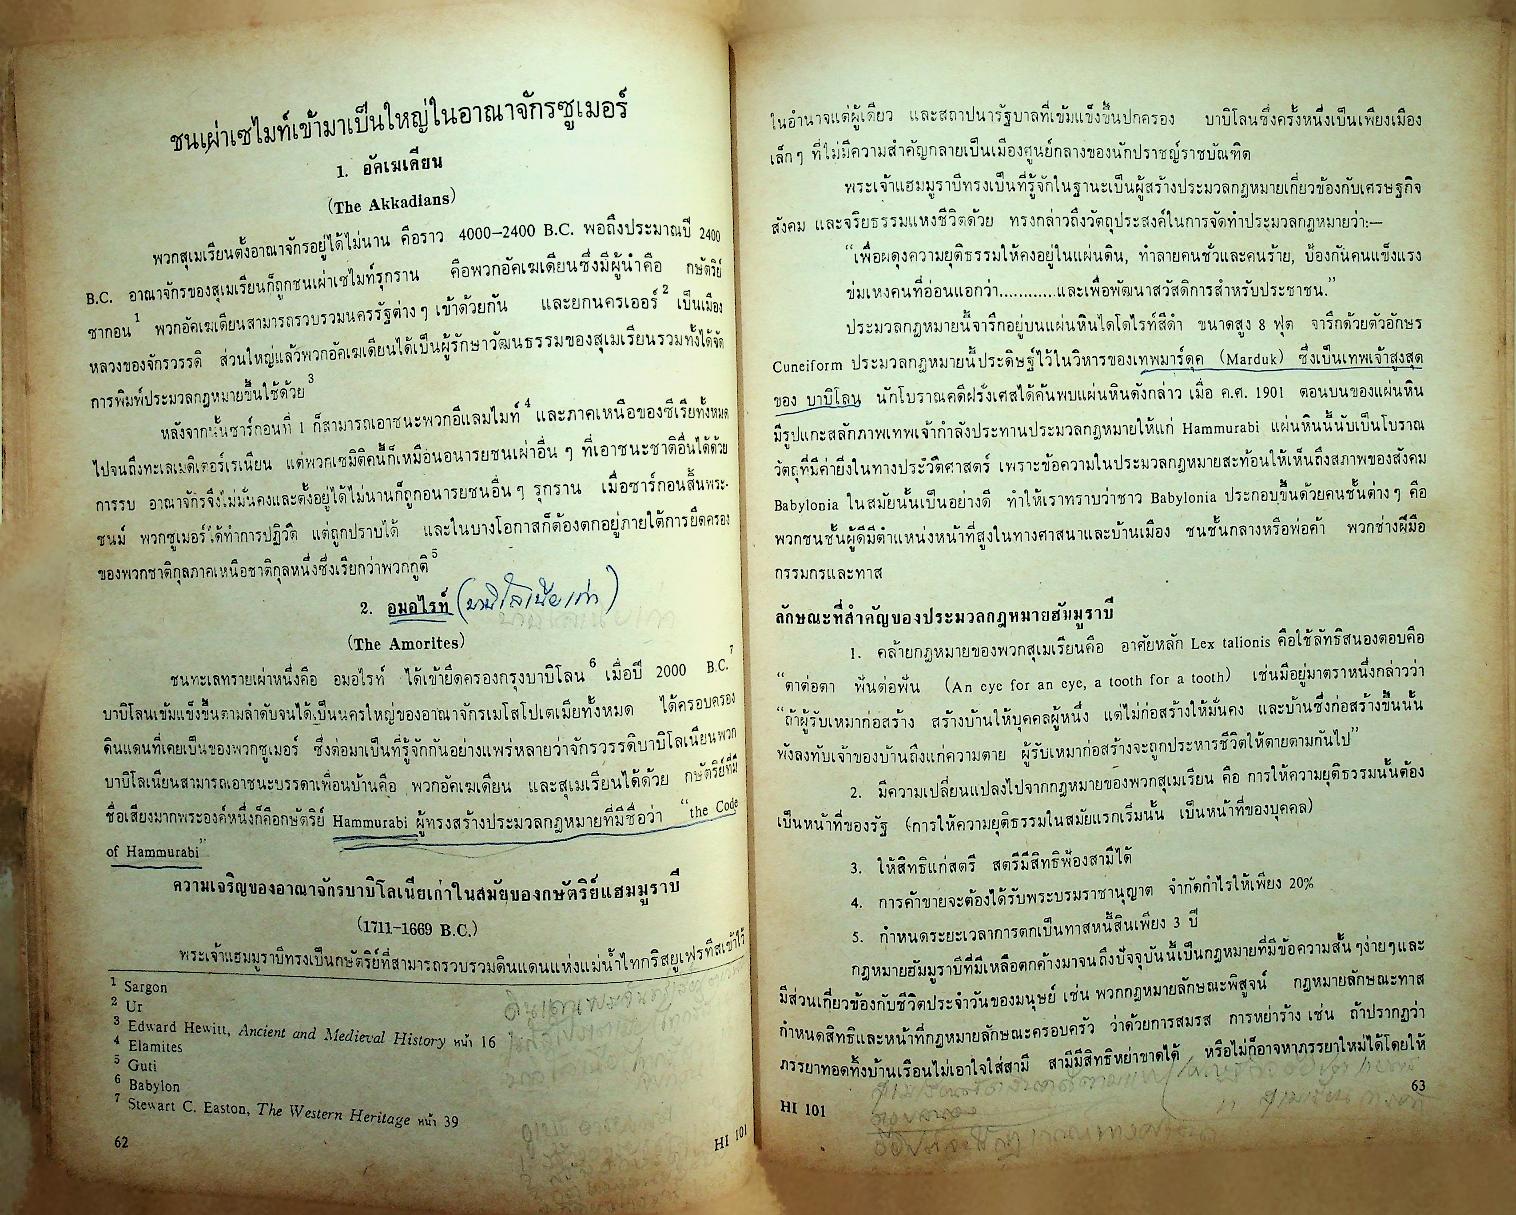 ชนเผ่าเซไมท์เข้ามาเป็นใหญ่ในอาณาจักรซูเมอร์
1. อัคเมเดียน
(The Akkadians)
พวกสุเมเรียนตั้งอาณาจักรอยู่ได้ไม่นาน คือราว 4000–2400 B.C. พอถึงประมาณปี 2400
B.C. อาณาจักรของสุเมเรียนก็ถูกชนเผ่าเซไมท์รุกราน คือพวกอัคเฆเดียนซึ่งมีผู้นำคือ กษัตริย์
ซากอน 1 พวกอัคเฆเดียนสามารถรวบรวมนครรัฐต่างๆ เข้าด้วยกัน และยกนครเออร์ 2 เป็นเมือง
หลวงของจักรวรรดิ ส่วนใหญ่แล้วพวกอัคเฆเดียนได้เป็นผู้รักษาวัฒนธรรมของสุเมเรียนรวมทั้งได้จัด
การพิมพ์ประมวลกฎหมายขึ้นใช้ด้วย 3
หลังจากนั้นซาร์กอนที่ 1 ก็สามารถเอาชนะพวกอีแลมไมท์ 4 และภาคเหนือของซีเรียทั้งหมด
ไปจนถึงทะเลเมดิเตอร์เรเนียน แต่พวกเซมิติคนี้ก็เหมือนอนารยชนเผ่าอื่น ๆ ที่เอาชนะชาติอื่นได้ด้วย
การรบ อาณาจักรจึงไม่มั่นคงและตั้งอยู่ได้ไม่นานก็ถูกอนารยชนอื่นๆ รุกราน เมื่อซาร์กอนสิ้นพระ-
ชนม์ พวกซูเมอร์ได้ทำการปฏิวัติ แต่ถูกปราบได้ และในบางโอกาสก็ต้องตกอยู่ภายใต้การยึดครอง
ของพวกชาติกุลภาคเหนือชาติกุลหนึ่งซึ่งเรียกว่าพวกกูติ 5
2. อมอไรท์ (บาบิโลเนียเก่า)
(The Amorites)
ชนทะเลทรายเผ่าหนึ่งคือ อมอไรท์ ได้เข้ายึดครองกรุงบาบิโลน 6 เมื่อปี 2000 B.C. 7
บาบิโลนเข้มแข็งขึ้นตามลำดับจนได้เป็นนครใหญ่ของอาณาจักรเมโสโปเตเมียทั้งหมด ได้ครอบครอง
ดินแดนที่เคยเป็นของพวกซูเมอร์ ซึ่งต่อมาเป็นที่รู้จักกันอย่างแพร่หลายว่าจักรวรรดิบาบิโลเนียนพวก
บาบิโลเนียนสามารถเอาชนะบรรดาเพื่อนบ้านคือ พวกอัคเฆเดียน และสุเมเรียนได้ด้วย กษัตริย์ที่มี
ชื่อเสียงมากพระองค์หนึ่งก็คือกษัตริย์ Hammurabi ผู้ทรงสร้างประมวลกฎหมายที่มีชื่อว่า “the Code
of Hammurabi”
ความเจริญของอาณาจักรบาบิโลเนียเก่าในสมัยของกษัตริย์แฮมมูราบี
(1711–1669 B.C.)
พระเจ้าแฮมมูราบีทรงเป็นกษัตริย์ที่สามารถรวบรวมดินแดนแห่งแม่น้ำไทกริสยูเฟรทีสเข้าไว้
1 Sargon
2 Ur
3 Edward Hewitt, Ancient and Medieval History หน้า 16
4 Elamites
5 Guti
6 Babylon
7 Stewart C. Easton, The Western Heritage หน้า 39
62
HI 101
ในอำนาจแต่ผู้เดียว และสถาปนารัฐบาลที่เข้มแข็งขึ้นปกครอง บาบิโลนซึ่งครั้งหนึ่งเป็นเพียงเมือง
เล็กๆ ที่ไม่มีความสำคัญกลายเป็นเมืองศูนย์กลางของนักปราชญ์ราชบัณฑิต
พระเจ้าแฮมมูราบีทรงเป็นที่รู้จักในฐานะเป็นผู้สร้างประมวลกฎหมายเกี่ยวข้องกับเศรษฐกิจ
สังคม และจริยธรรมแห่งชีวิตด้วย ทรงกล่าวถึงวัตถุประสงค์ในการจัดทำประมวลกฎหมายว่า:—
“เพื่อผดุงความยุติธรรมให้คงอยู่ในแผ่นดิน, ทำลายคนชั่วและคนร้าย, ป้องกันคนแข็งแรง
ข่มเหงคนที่อ่อนแอกว่า............และเพื่อพัฒนาสวัสดิการสำหรับประชาชน.”
ประมวลกฎหมายนี้จารึกอยู่บนแผ่นหินไดโดไรท์สีดำ ขนาดสูง 8 ฟุต จารึกด้วยตัวอักษร
Cuneiform ประมวลกฎหมายนี้ประดิษฐ์ไว้ในวิหารของเทพมาร์ดุค (Marduk) ซึ่งเป็นเทพเจ้าสูงสุด
ของ บาบิโลน นักโบราณคดีฝรั่งเศสได้ค้นพบแผ่นหินดังกล่าว เมื่อ ค.ศ. 1901 ตอนบนของแผ่นหิน
มีรูปแกะสลักภาพเทพเจ้ากำลังประทานประมวลกฎหมายให้แก่ Hammurabi แผ่นหินนี้นับเป็นโบราณ
วัตถุที่มีค่ายิ่งในทางประวัติศาสตร์ เพราะข้อความในประมวลกฎหมายสะท้อนให้เห็นถึงสภาพของสังคม
Babylonia ในสมัยนั้นเป็นอย่างดี ทำให้เราทราบว่าชาว Babylonia ประกอบขึ้นด้วยคนชั้นต่างๆ คือ
พวกชนชั้นผู้ดีมีตำแหน่งหน้าที่สูงในทางศาสนาและบ้านเมือง ชนชั้นกลางหรือพ่อค้า พวกช่างฝีมือ
กรรมกรและทาส
ลักษณะที่สำคัญของประมวลกฎหมายฮัมมูราบี
1. คล้ายกฎหมายของพวกสุเมเรียนคือ อาศัยหลัก Lex talionis คือใช้ลัทธิสนองตอบคือ
“ตาต่อตา ฟันต่อฟัน (An eye for an eye, a tooth for a tooth) เช่นมีอยู่มาตราหนึ่งกล่าวว่า
“ถ้าผู้รับเหมาก่อสร้าง สร้างบ้านให้บุคคลผู้หนึ่ง แต่ไม่ก่อสร้างให้มั่นคง และบ้านซึ่งก่อสร้างขึ้นนั้น
พังลงทับเจ้าของบ้านถึงแก่ความตาย ผู้รับเหมาก่อสร้างจะถูกประหารชีวิตให้ตายตามกันไป”
2. มีความเปลี่ยนแปลงไปจากกฎหมายของพวกสุเมเรียน คือ การให้ความยุติธรรมนั้นต้อง
เป็นหน้าที่ของรัฐ (การให้ความยุติธรรมในสมัยแรกเริ่มนั้น เป็นหน้าที่ของบุคคล)
3. ให้สิทธิแก่สตรี สตรีมีสิทธิฟ้องสามีได้
4. การค้าขายจะต้องได้รับพระบรมราชานุญาต จำกัดกำไรให้เพียง 20%
5. กำหนดระยะเวลาการตกเป็นทาสหนี้สินเพียง 3 ปี
กฎหมายฮัมมูราบีที่มีเหลือตกค้างมาจนถึงปัจจุบันนี้เป็นกฎหมายที่มีข้อความสั้น ๆง่ายๆและ
มีส่วนเกี่ยวข้องกับชีวิตประจำวันของมนุษย์ เช่น พวกกฎหมายลักษณะพิสูจน์ กฎหมายลักษณะทาส
กำหนดสิทธิและหน้าที่กฎหมายลักษณะครอบครัว ว่าด้วยการสมรส การหย่าร้าง เช่น ถ้าปรากฏว่า
ภรรยาทอดทิ้งบ้านเรือนไม่เอาใจใส่สามี สามีมีสิทธิหย่าขาดได้ หรือไม่ก็อาจหาภรรยาใหม่ได้โดยให้
HI 101
63